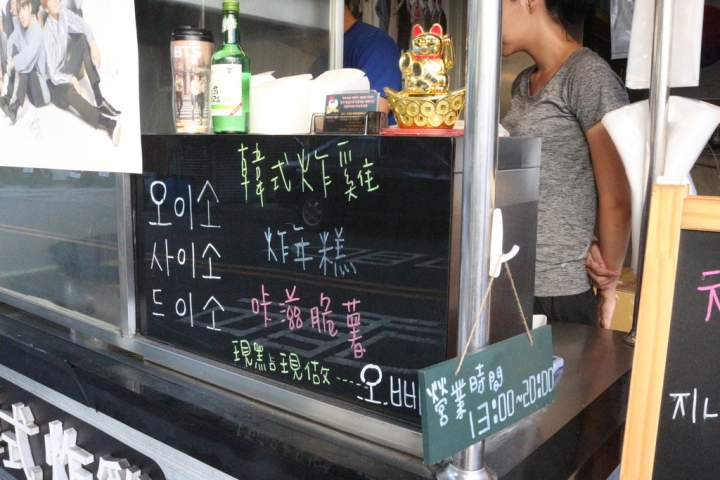 BTS
韓式炸雞
오이소
炸年糕
사이소
咔滋脆薯
드이소
現點現做----오빠
營業時間
13:00~20:00
式炸
지니